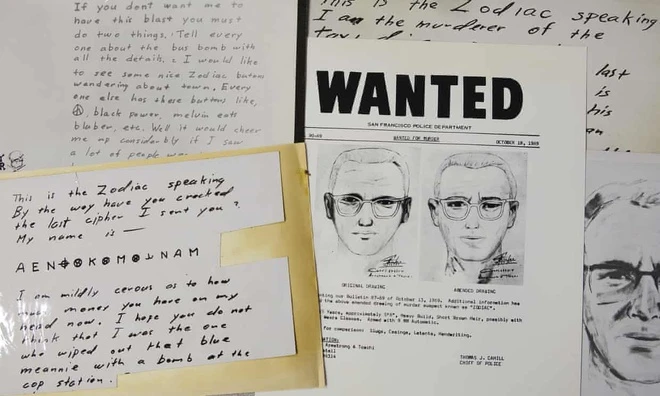 If you don't want me to
have this blast you must
do two things. Tell every
one about the bus bomb with
all the details. I would like
to see some nice Zodiac butons
wandering about town. Every
one else has these buttons like,
black power, melvin eats
blubber, etc. Well it would cheer
me up considerbly if I saw
a lot of people
This is the Zodiac speaking
By the way have you cracked
the last cipher I sent you?
My name is —
AEN⌖⊗K⊗M⊗⅃NAM
I am mildly cerous as to how
much money you have on my
head now. I hope you do not
think that I was the one
who wiped out that blue
meannie with a bomb at the
cop station.
This is the Zodiac speaking
I am the murderer of the
last
is
his
WANTED
SAN FRANCISCO POLICE DEPARTMENT
90-69
WANTED FOR MURDER
OCTOBER 18, 1969
ORIGINAL DRAWING
AMENDED DRAWING
ting our Bulletin 87-69 of October 13, 1969. Additional information has
the above amended drawing of murder suspect known as "ZODIAC".
Years, approximately 5'8", Heavy Build, Short Brown Hair, possibly with
Wears Glasses. Armed with 9 MM Automatic.
for comparison: Slugs, Casings, Latents, Handwriting.
Armstrong & Toschi
THOMAS J. CAHILL
CHIEF OF POLICE